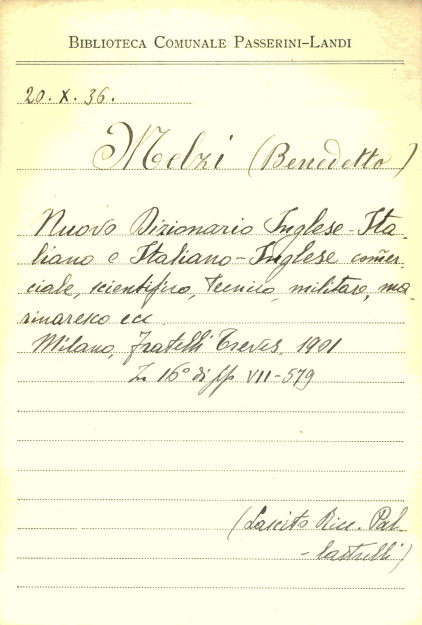 BIBLIOTECA COMUNALE PASSERINI-LANDI
20. X. 36.
Melzi (Benedetto)
Nuovo Dizionario Inglese-Ita-
liano e Italiano-Inglese com̃er-
ciale, scientifico, tecnico, militare, ma-
rinaresco ecc
Milano, Fratelli Treves, 1901
In 16° di pp VII-579
(Lascito Ricc. Pal-
-lastrelli)